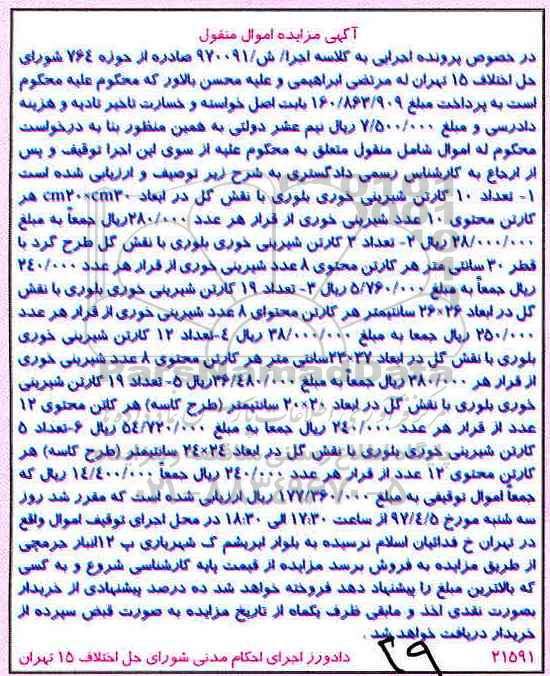 آگهی مزایده اموال منقول
در خصوص پرونده اجرایی به کلاسه اجرا/ ش/۹۷۰۰۹۱ صادره از حوزه ۷۶۴ شورای
حل اختلاف ۱۵ تهران له مرتضی ابراهیمی و علیه محسن بالاور که محکوم علیه محکوم
است به پرداخت مبلغ ۱۶۰/۸۶۳/۹۰۹ بابت اصل خواسته و خسارت تاخیر تادیه و هزینه
دادرسی و مبلغ ۷/۵۰۰/۰۰۰ ریال نیم عشر دولتی به همین منظور بنا به درخواست
محکوم له اموال شامل منقول متعلق به محکوم علیه از سوی این اجرا توقیف و پس
از ارجاع به کارشناس رسمی دادگستری به شرح زیر توصیف و ارزیابی شده است
۱- تعداد ۱۰ کارتن شیرینی خوری بلوری با نقش گل در ابعاد cm۲۰×cm۳۰ هر
کارتن محتوی ۱۰ عدد شیرینی خوری از قرار هر عدد ۲۸۰/۰۰۰ریال جمعاً به مبلغ
۲۸/۰۰۰/۰۰۰ ریال ۲- تعداد ۳ کارتن شیرینی خوری بلوری با نقش گل طرح گرد با
قطر ۳۰ سانتی متر هر کارتن محتوی ۸ عدد شیرینی خوری از قرار هر عدد ۲۴۰/۰۰۰
ریال جمعاً به مبلغ ۵/۷۶۰/۰۰۰ ریال ۳- تعداد ۱۹ کارتن شیرینی خوری بلوری با نقش
گل در ابعاد ۲۶×۲۶ سانتیمتر هر کارتن محتوای ۸ عدد شیرینی خوری از قرار هر عدد
۲۵۰/۰۰۰ ریال جمعا به مبلغ ۳۸/۰۰۰/۰۰۰ ریال ۴-تعداد ۱۲ کارتن شیرینی خوری
بلوری با نقش گل در ابعاد ۳۷×۲۳سانتی متر هر کارتن محتوی ۸ عدد شیرینی خوری
از قرار هر ۳۸۰/۰۰۰ ریال جمعاً به مبلغ ۳۶/۴۸۰/۰۰۰ریال ۵- تعداد ۱۹ کارتن شیرینی
خوری بلوری با نقش گل در ابعاد ۲۰×۲۰ سانتیمتر (طرح کاسه) هر کاتن محتوی ۱۲
عدد از قرار هر عدد ۲۴۰/۰۰۰ ریال جمعا به مبلغ ۵۴/۷۲۰/۰۰۰ ریال ۶-تعداد ۵
کارتن شیرینی خوری بلوری با نقش گل در ابعاد ۲۴×۲۴ سانتیمتر (طرح کاسه) هر
کارتن محتوی ۱۲ عدد از قرار هر عدد ۲۴۰/۰۰۰ ریال جمعاً ۱۴/۴۰۰/۰۰۰ ریال که
جمعاً اموال توقیفی به مبلغ ۱۷۷/۳۶۰/۰۰۰ ریال ارزیابی شده است که مقرر شد روز
سه شنبه مورخ ۹۷/۴/۵ از ساعت ۱۷:۳۰ الی ۱۸:۳۰ در محل اجرای توقیف اموال واقع
در تهران خ فدائیان اسلام نرسیده به بلوار ابریشم ک شهریاری پ ۱۲انبار جرمچی
از طریق مزایده به فروش برسد مزایده از قیمت پایه کارشناسی شروع و به کسی
که بالاترین مبلغ را پیشنهاد دهد فروخته خواهد شد ده درصد پیشنهادی از خریدار
بصورت نقدی اخذ و مابقی ظرف یکماه از تاریخ مزایده به صورت قبض سپرده از
خریدار دریافت خواهد شد .
۲۱۵۹۱ دادورز اجرای احکام مدنی شورای حل اختلاف ۱۵ تهران
۲۹
ParsNamadData